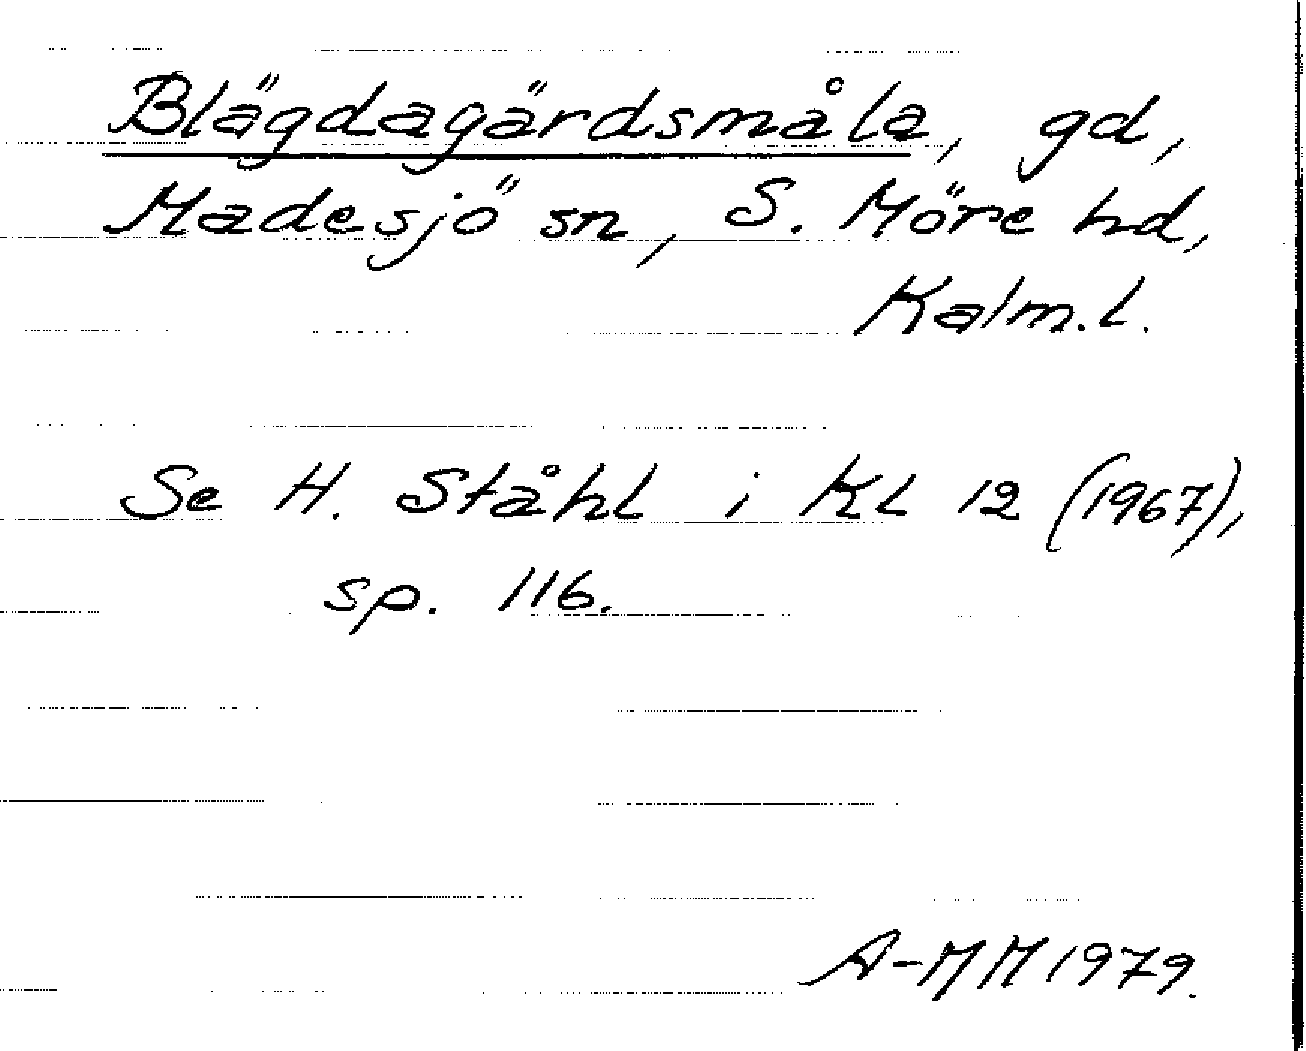 Blägdagärdsmåla, gd,
Madesjö sn, S. Möre hd,
Kalm.l.
Se H. Ståhl i KL 12 (1967),
sp. 116.
A-MM 1979.